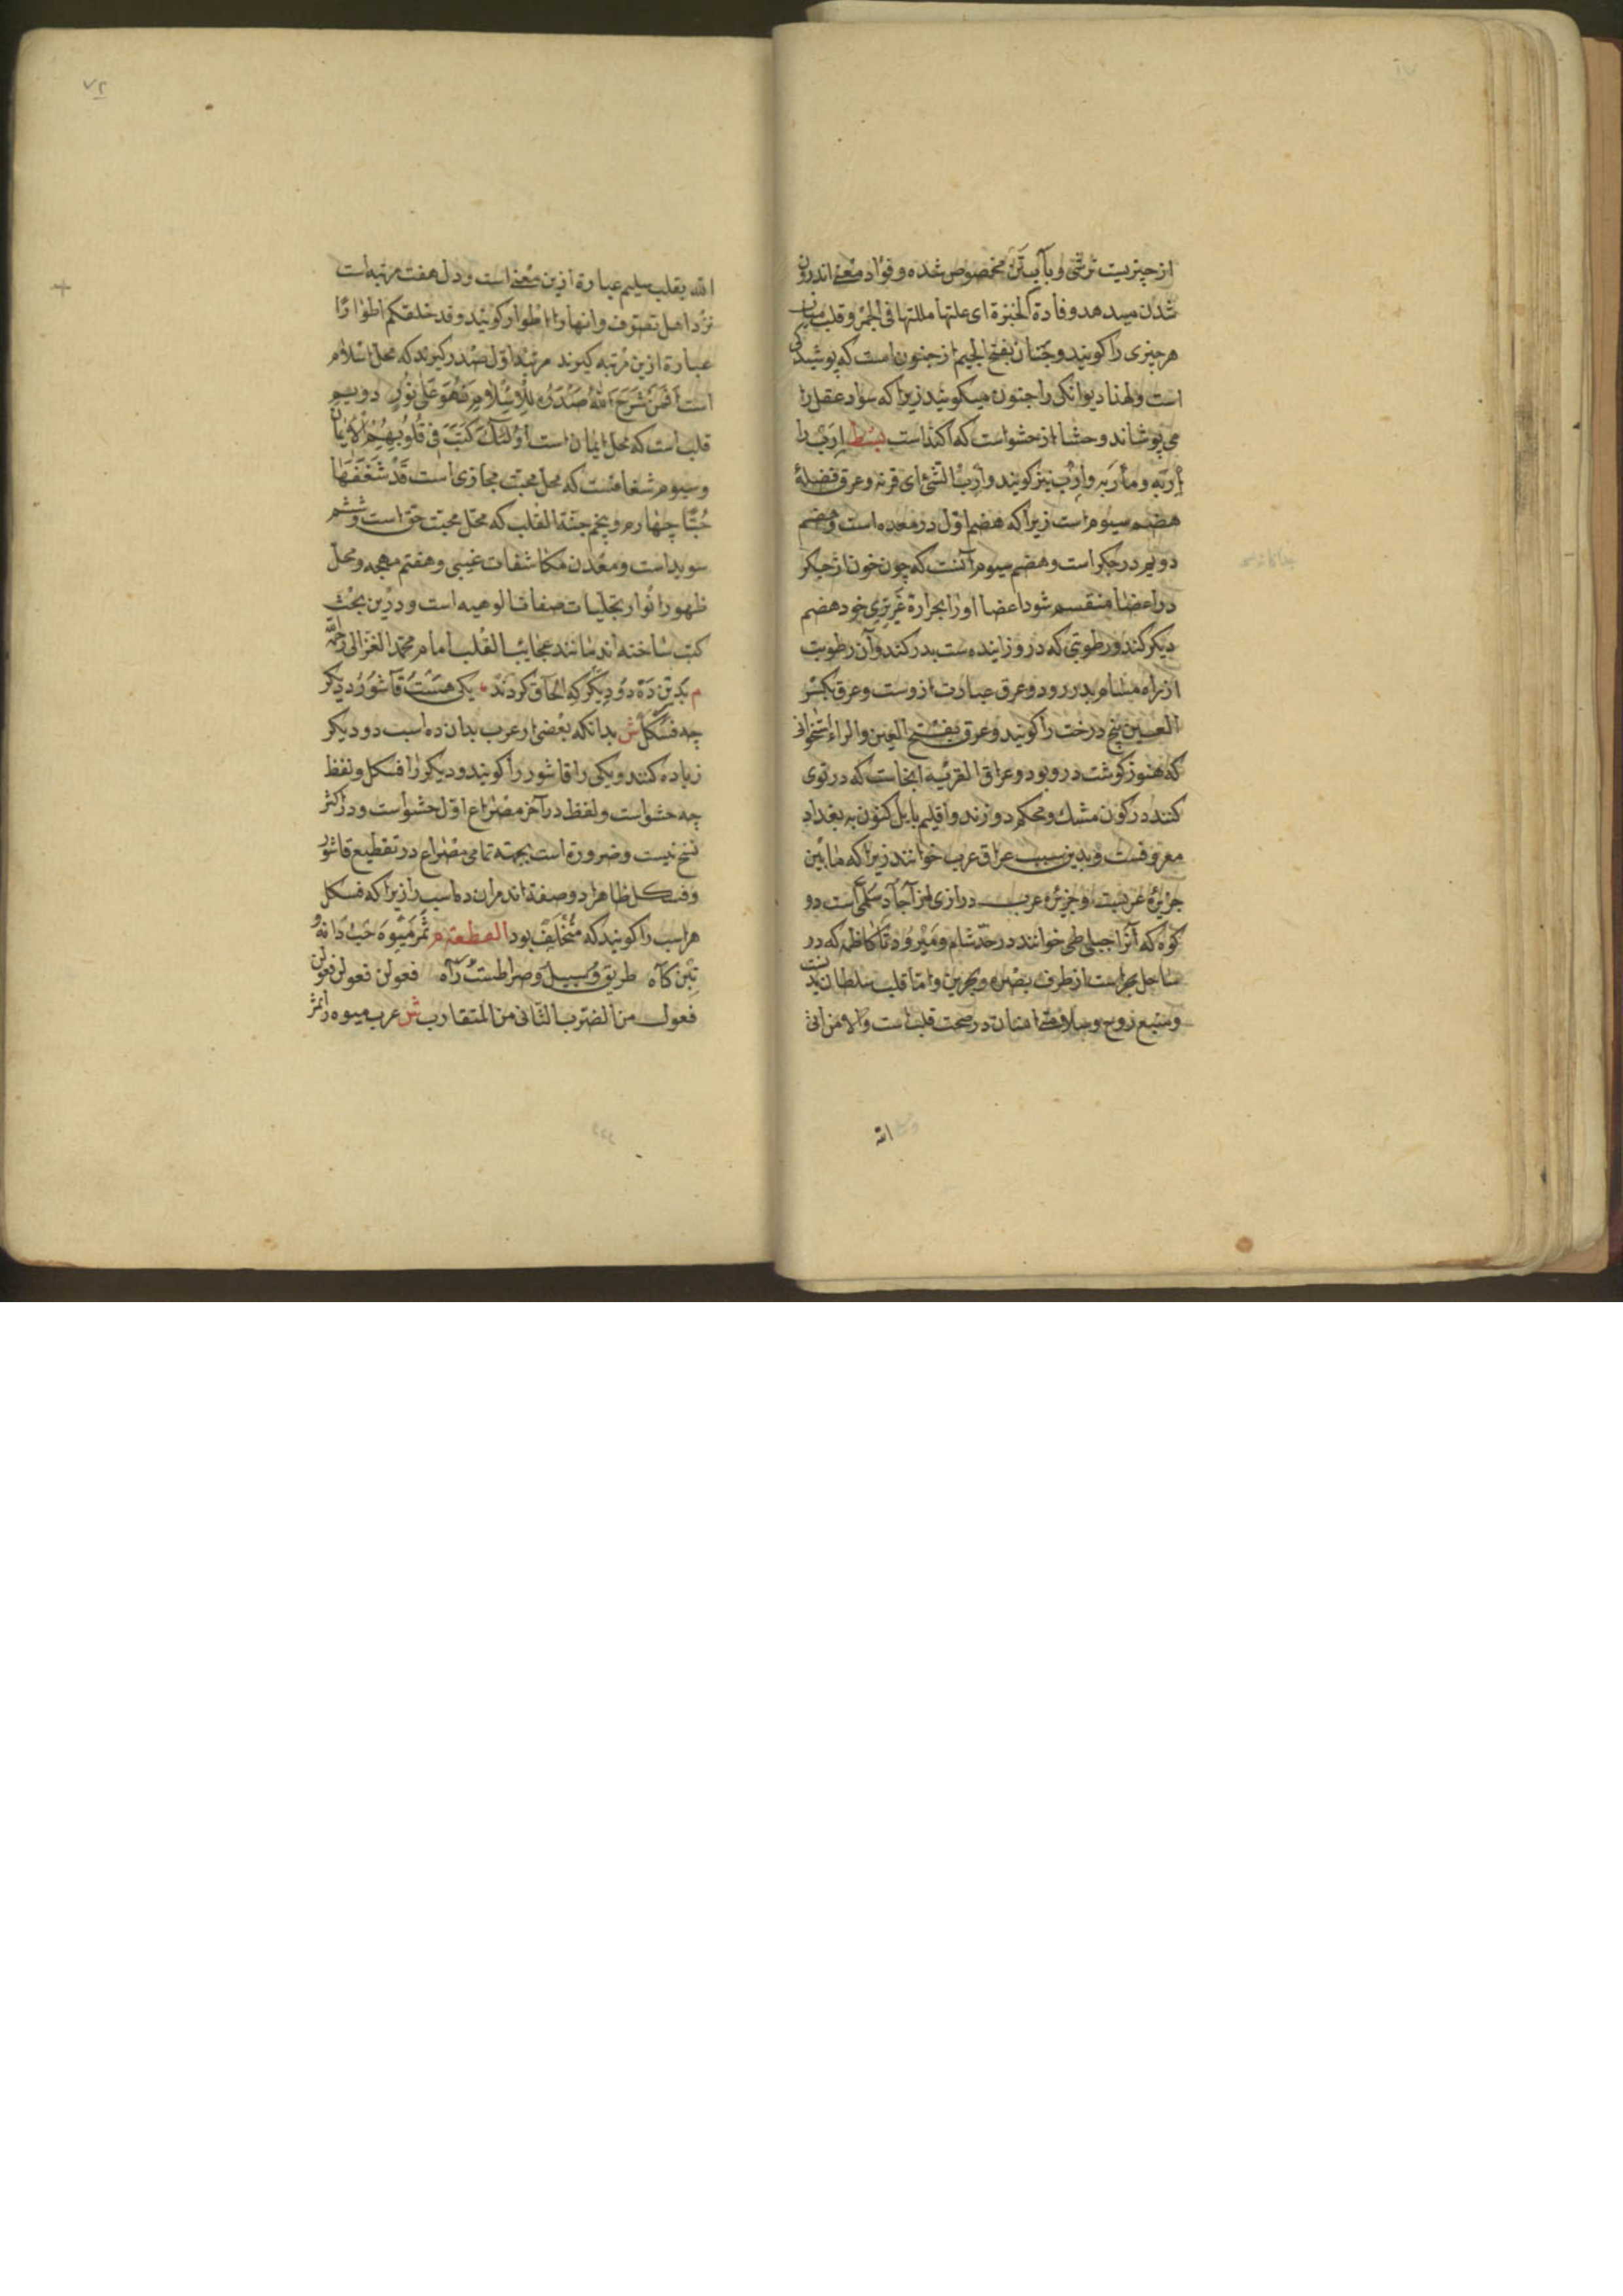 از چیزیست ترشی وبآب تن مخصوص شده وفؤاد معنی اندرون
شدن میدهد وفادة الخبزة ای علتها مللتها فی الجمر وقلب میان
هر چیزی را کویند وجنان بفتح الجیم از جنون است که پوشیدکی
است ولهذا دیوانکی را جنون میکویند زیرا که سواد عقل را
می پوشاند وحشا از حشو است که اکنداست بسط ارب را
اربه ومأربه وارب نیز کویند وأرب الشئ ای قربه وعرق فضلۀ
هضم سیوم است زیرا که هضم اول در معده است وهضم
دویم در جکر است وهضم سیوم آنست که چون خون از جکر
در اعضا منقسم شود اعضا اورا بحرارة غریزی خود هضم
دیکر کند ورطوبتی که درو زاینده ست بدر کند وآن رطوبت
از راه مسام بدر رود وعرق عبارت ازوست وعرق بکسر
العین بیخ درخت را کویند وعرق بفتح العین والراء استخوانی
که هنوز کوشت درو بود وعراق القربه انجاست که در توی
کنند در کون مشك ومحکم دوزند واقلیم بابل کنون به بغداد
معروفست وبدین سبب عراق عرب خوانند زیرا که مابین
جزایر عربست وجزیره عرب درازی از آجا وسلمی است دو
کوه که آنرا جبلی طی خوانند در حد شام ومیرود تا کاظمه که در
ساحل بحر است از طرف بصره وبحرین واما قلب سلطان بدنست
ومنبع روح وسلامتی انسان در صحت قلب است والا من اتی
الله
۷۲
الله بقلب سلیم عبارة ازین معنی است ودل هفت مرتبه است
نزد اهل تصوف وانها را اطوار کویند وقد خلقکم اطوارا
عبارة ازین مرتبه کیرند مرتبۀ اول صدر کیرند که محل اسلام
است أفمن شرح الله صدره للاسلام فهو علی نور دویم
قلب است که محل ایمان است اولئك کتب فی قلوبهم الایمان
وسیوم شغافست که محل محبت مجازی است قد شغفها
حبا چهارم وپنجم حبة القلب که محل محبت حق است وششم
سویداست ومعدن مکاشفات غیبی وهفتم مهجه ومحل
ظهور انوار تجلیات صفات الوهیه است ودرین بحث
کتب ساخته اند مانند عجایب القلب امام محمد الغزالی رحمه
م بدین ده دو دیکر که الحاق کردند یکی هست قاشور ودیکر
چه فسکل ش بدانکه بعضی از عرب بدان ده اسب دو دیکر
زیاده کنند ویکی را قاشور را کویند ودیکر را فسکل ولفظ
چه حشو است ولفظ در آخر مصراع اول حشو است ودر اکثر
نسخ نیست وضرورة است بجهة تمامی مصراع در تقطیع قاشور
وفسکل ظاهرا دو صفة اند مران ده اسب را زیرا که فسکل
هر اسب را کویند که متخلف بود القطعة م ثمر میوه حب دانه
تبن کاه طریق وسبیل وصراطست راه فعولن فعولن فعولن
فعول من الضرب الثانی من المتقارب ش عرب میوه را ثمر